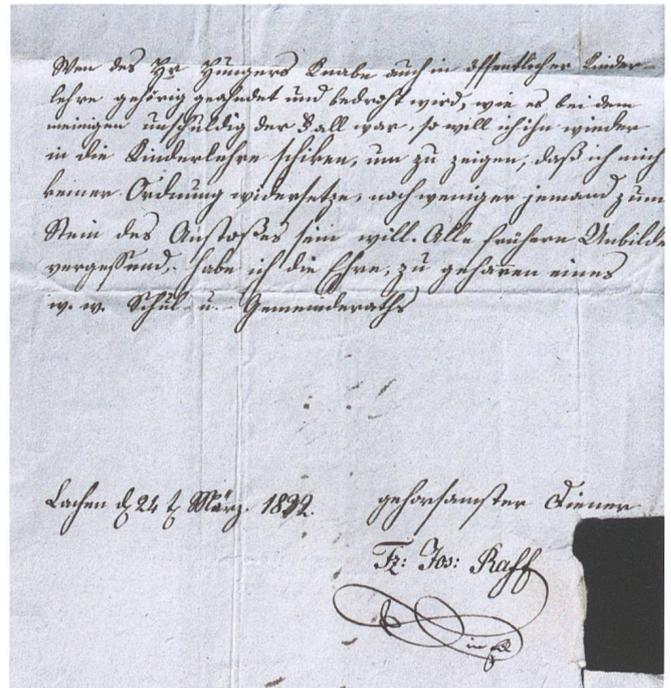 Wen des Hr Hungers Knabe auch in öffentlicher Kinder-
lehre gehörig geahndet und bedroht wird, wie es bei dem
meinigen unschuldig der Fall war, so will ich ihn wieder
in die Kinderlehre schiken, um zu zeigen, daß ich mich
keiner Ordnung widersetze, noch weniger jemand zum
Stein des Anstoßes sein will. Alle frühern Unbilde
vergessend, habe ich die Ehre, zu geharen eines
w. w. Schul u. Gemeinderaths
Lachen d 24 t März 1832.
gehorsamster Diener
Fz: Jos: Raff